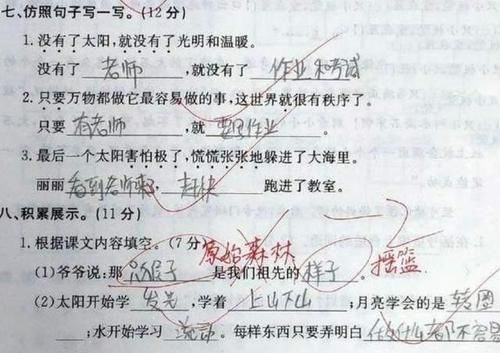 七、仿照句子写一写。(12 分)
1.没有了太阳,就没有了光明和温暖。
没有了 老师 ,就没有了 作业和考试
2.只要万物都做它最容易做的事,这世界就很有秩序了。
只要 有老师 ,就 有作业 。
3.最后一个太阳害怕极了,慌慌张张地躲进了大海里。
丽丽 看到老师来, 赶快 跑进了教室。
八、积累展示。(11 分)
1.根据课文内容填空。(7 分) 原始森林
(1)爷爷说:那 猴子 是我们祖先的 样子 。 摇篮
(2)太阳开始学 发光 ,学着 上山下山 ;月亮学会的是 转圈
;水开始学习 流动 。每样东西只要弄明白 做什么都不容易